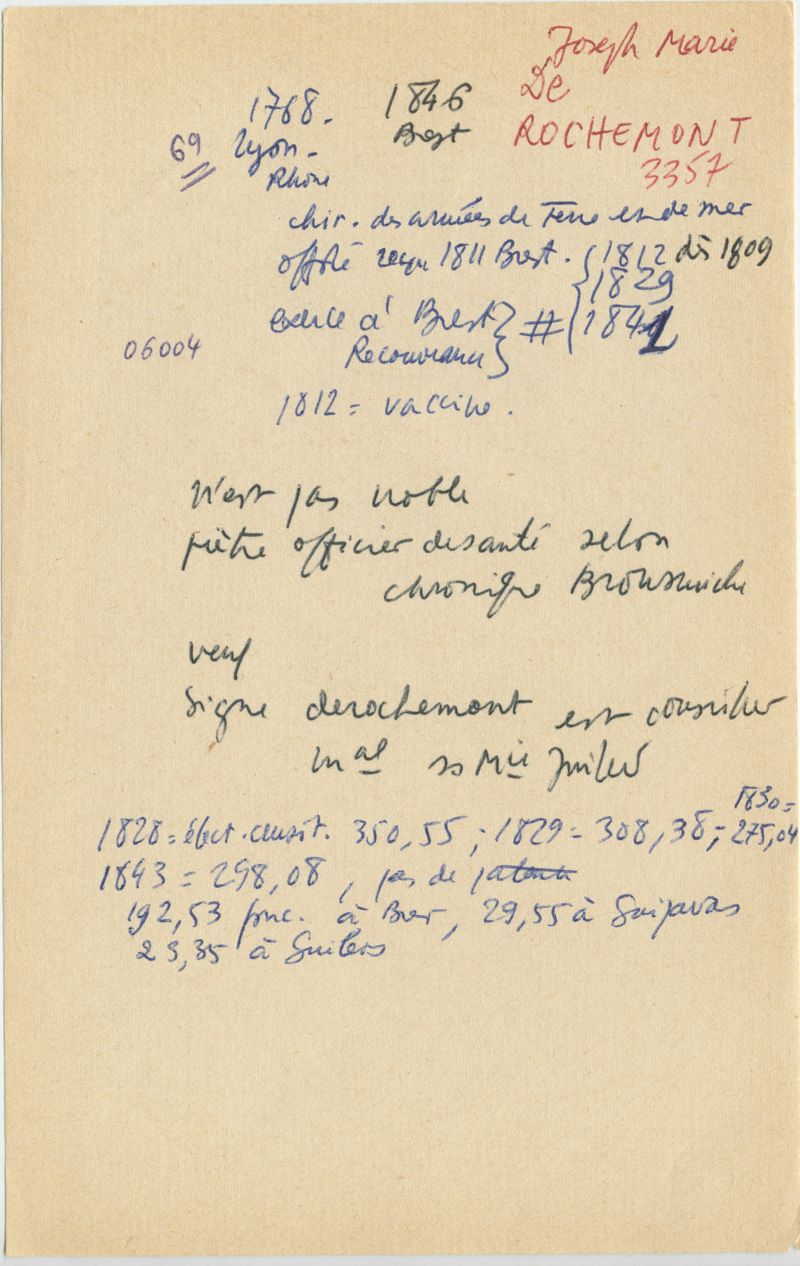 Joseph Marie
De
ROCHEMONT
3357
1768. 1846
69 Lyon. Brest
Rhône
chir. des armées de Terre et de mer
offsté reçu 1811 Brest. { 1812 dès 1809
1829
exerce à Brest } # { 1841
Recouvrance
06004
1812 = vaccine.
N'est pas noble
piètre officier de santé selon
chronique Brousmiche
veuf
Signe derochemont est conseiller
mal ss Mie Juillet
1830 =
1828 = élect. censit. 350,55 ; 1829 = 308,38 ; 275,04
1843 = 298,08, pas de patente
192,53 fonc. à Brest, 29,55 à Guipavas
23,35 à Guilers